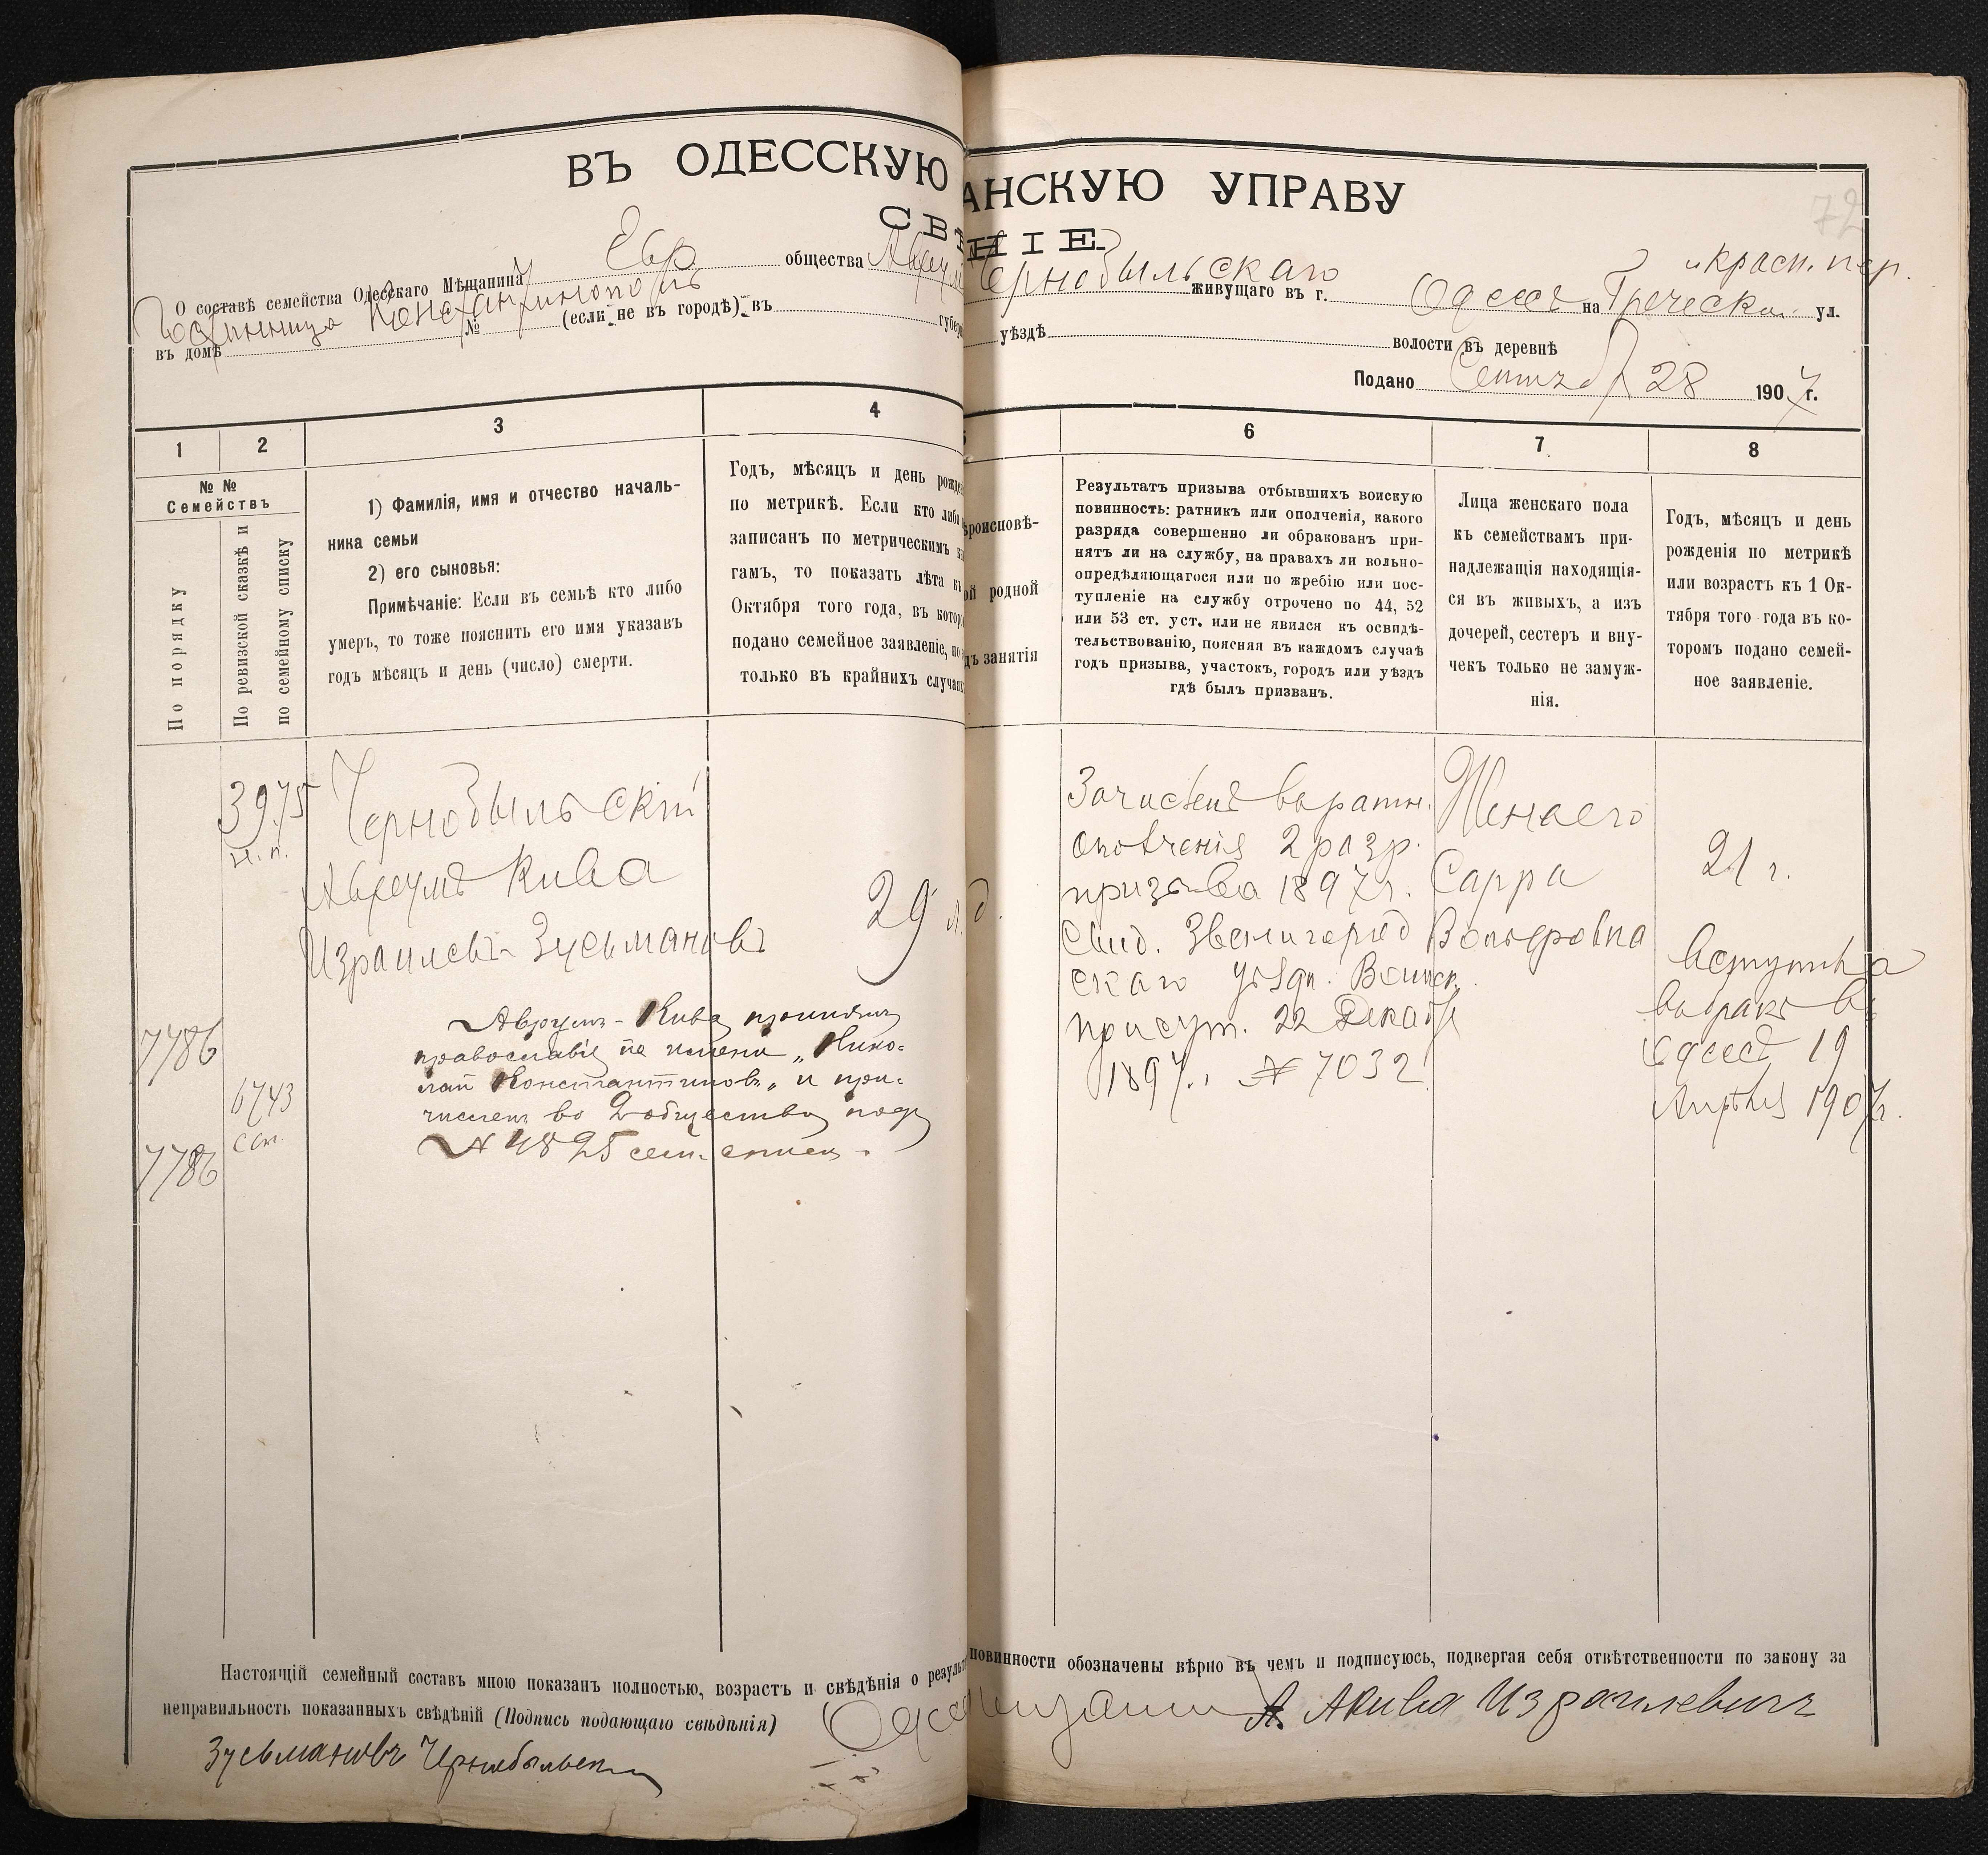 72
ВЪ ОДЕССКУЮ АНСКУЮ УПРАВУ
СВѢ НІЕ.
О составѣ семейства Одесскаго Мѣщанина Евр общества Аврум Чернобыльскаго живущаго въ г. Одессѣ на Греческ. и красн. пер. ул.
въ домѣ Гостинница Константинополь № (если не въ городѣ) въ губер уѣздѣ волости въ деревнѣ
Подано Сентябр 28 1907 г.
1 2 3 4 5 6 7 8
№ №
Семействъ
По порядку
По ревизской сказкѣ и
по семейному списку
1) Фамилія, имя и отчество началь-
ника семьи
2) его сыновья:
Примѣчаніе: Если въ семьѣ кто либо
умеръ, то тоже пояснить его имя указавъ
годъ мѣсяцъ и день (число) смерти.
Годъ, мѣсяцъ и день рожде
по метрикѣ. Если кто либо
записанъ по метрическимъ к
гамъ, то показать лѣта къ
Октября того года, въ которо
подано семейное заявленіе, но
только въ крайнихъ случаях
ѣроисповѣ-
ой родной
дъ занятія
Результатъ призыва отбывшихъ воискую
повинность: ратникъ или ополченія, какого
разряда совершенно ли обракованъ при-
нятъ ли на службу, на правахъ ли вольно-
опредѣляющагося или по жребію или пос-
тупленіе на службу отрочено по 44, 52
или 53 ст. уст. или не явился къ освидѣ-
тельствованію, поясняя въ каждомъ случаѣ
годъ призыва, участокъ, городъ или уѣздъ
гдѣ былъ призванъ.
Лица женскаго пола
къ семействамъ при-
надлежащія находящія-
ся въ живыхъ, а изъ
дочерей, сестеръ и вну-
чекъ только не замуж-
нія.
Годъ, мѣсяцъ и день
рожденія по метрикѣ
или возрастъ къ 1 Ок-
тября того года въ ко-
торомъ подано семей-
ное заявленіе.
3975
н. п.
Чернобыльскій
Аврумъ Кива
Израилевъ-Зусьмановъ
29 л.
7786
6743
7786
Аврумъ-Кива принялъ
православіе на имени „Нико-
лай Константиновъ„ и при-
численъ во 2 общество подъ
№ 4825 сем. списк.
Зачисленъ въ ратн.
ополченія 2 разр.
призыва 1897 г.
Свид. Звенигород
скаго уѣздн. Воинск.
присут. 22 Декабр
1897 г. № 7032
Жена его
Сарра
Вольфовна
21 г.
вступила
въ бракъ въ
Одессѣ 19
Апрѣля 1907 г.
Настоящій семейный составъ мною показанъ полностью, возрастъ и свѣдѣнія о резуль повинности обозначены вѣрно въ чемъ и подписуюсь, подвергая себя отвѣтственности по закону за
неправильность показанныхъ свѣдѣній (Подпись подающаго свѣдѣнія) А. Акива Израилевичъ
Зусьмановъ Чернобыльскій